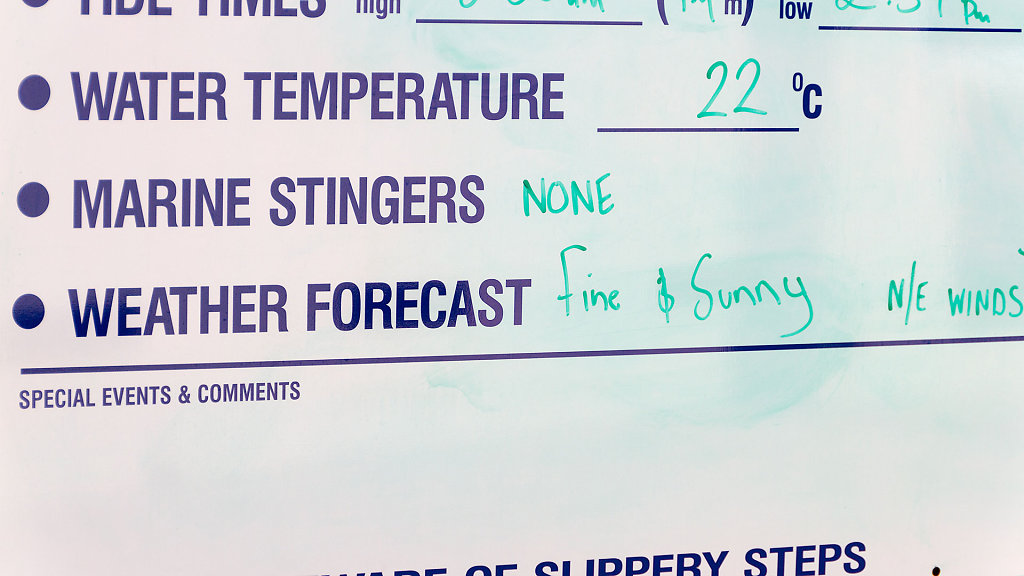 TIDE TIMES high low
WATER TEMPERATURE 22 °C
MARINE STINGERS NONE
WEATHER FORECAST Fine & Sunny N/E WINDS
SPECIAL EVENTS & COMMENTS
OF SLIPPERY STEPS